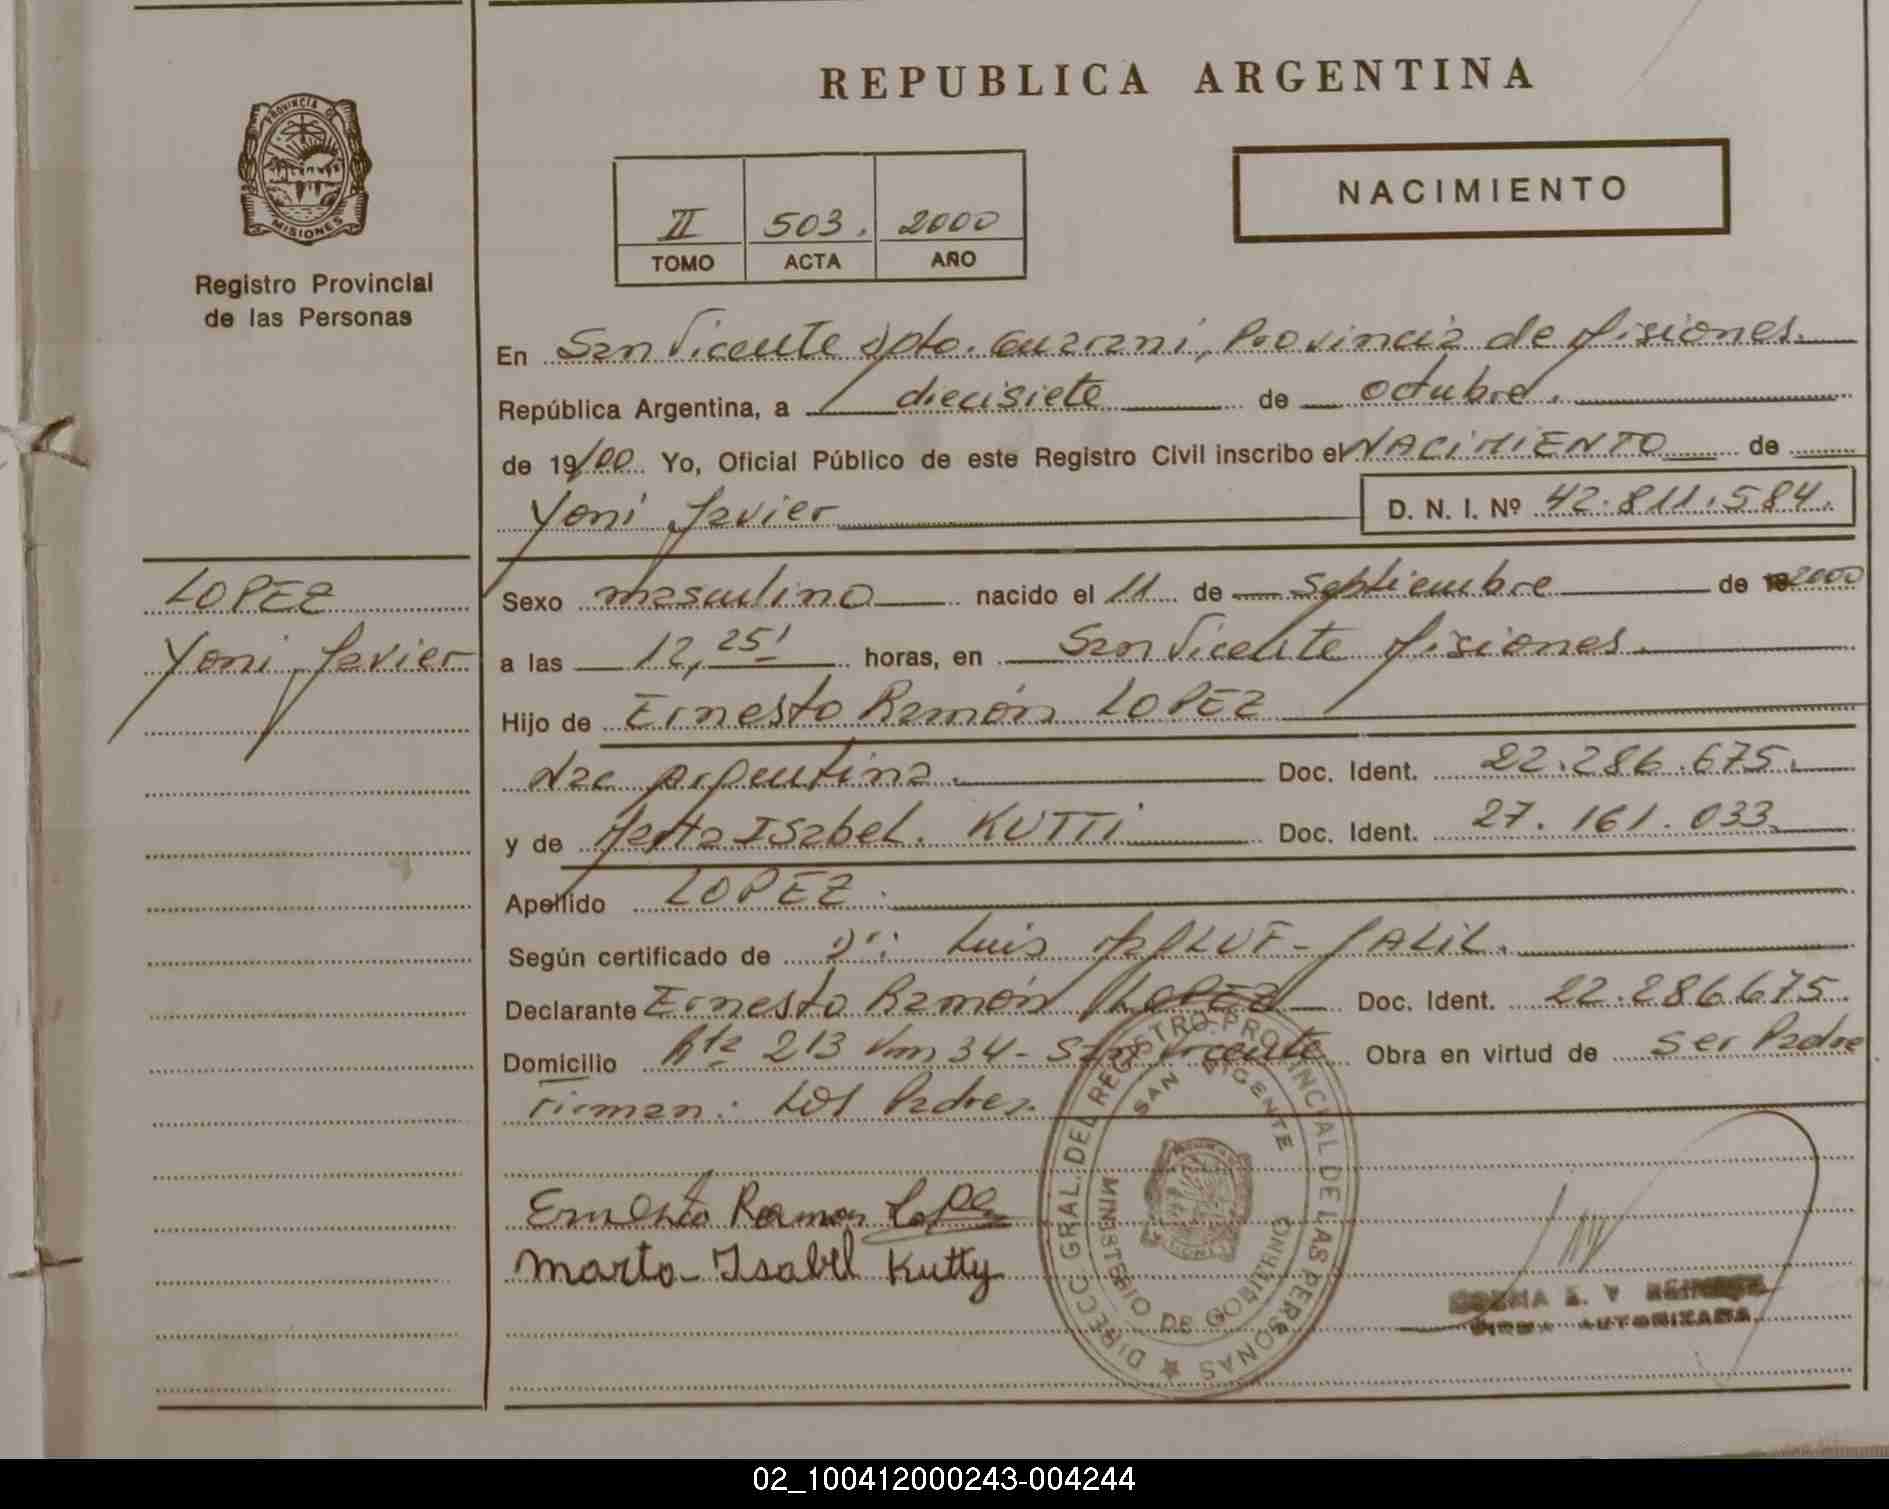 REPUBLICA ARGENTINA
PROVINCIA DE
MISIONES
Registro Provincial
de las Personas
II 503. 2000
TOMO ACTA AÑO
NACIMIENTO
En San Vicente Dpto. Guarani, Provincia de Misiones.
República Argentina, a diecisiete de octubre.
de 19/00 Yo, Oficial Público de este Registro Civil inscribo el NACIMIENTO de
Yoni Javier
D. N. I. Nº 42.811.584.
LOPEZ
Yoni Javier
Sexo masculino nacido el 11 de Septiembre de 2000
a las 12,25' horas, en San Vicente Misiones.
Hijo de Ernesto Ramón LOPEZ
Nac Argentina. Doc. Ident. 22.286.675.
y de Marta Isabel. KUTTI Doc. Ident. 27.161.033
Apellido LOPEZ.
Según certificado de Dr: Luis JALIL.
Declarante Ernesto Ramón LOPEZ Doc. Ident. 22.286.675
Domicilio Rta 213 Km 34 - San Vicente Obra en virtud de Ser Padre
Firman: Los Padres.
Ernesto Ramon Lopez
Marta Isabel Kutty
DIRECC. GRAL. DEL REGISTRO PROVINCIAL DE LAS PERSONAS
SAN VICENTE
MINISTERIO DE GOBIERNO
E. V
FIRMA AUTORIZADA
02_100412000243-004244